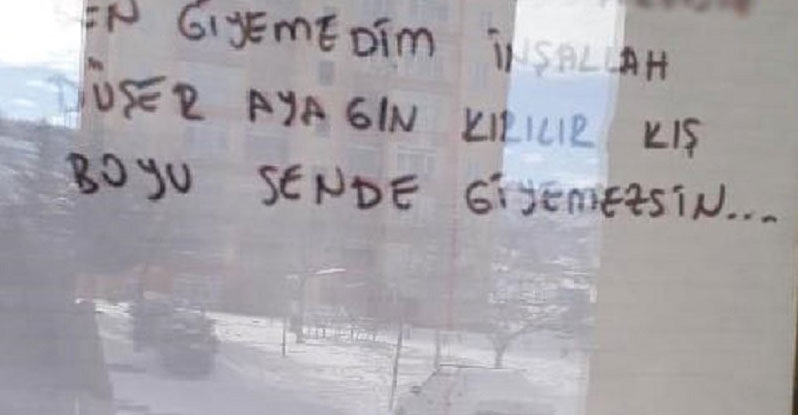 EN GİYEMEDİM İNŞALLAH
DÜŞER AYAGIN KIRILIR KIŞ
BOYU SENDE GİYEMEZSİN...